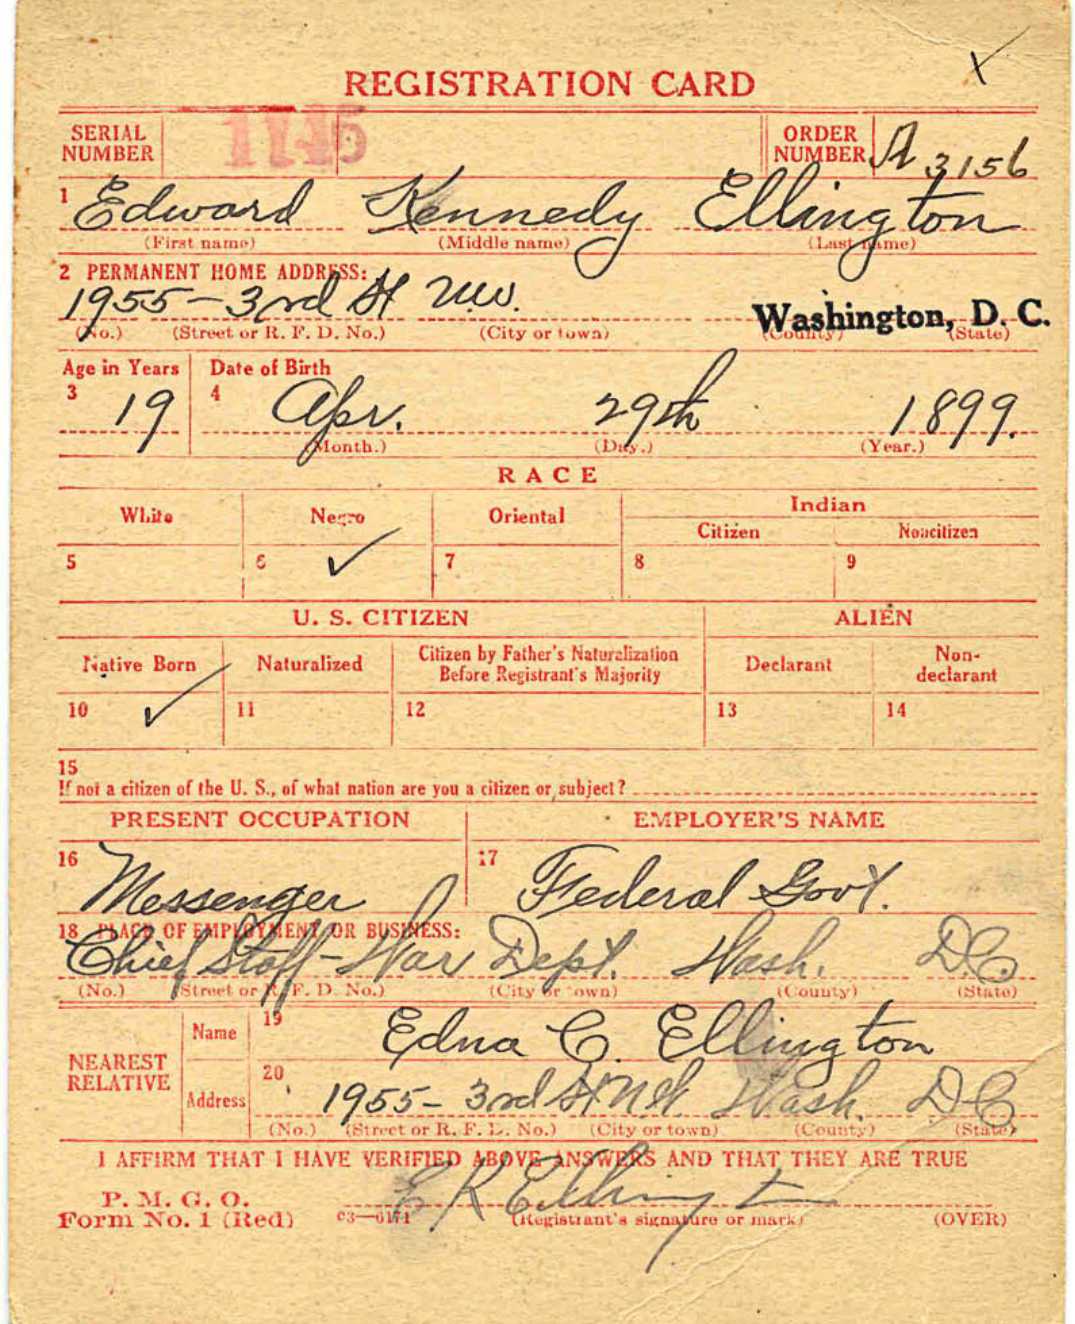 REGISTRATION CARD
SERIAL NUMBER 1745 ORDER NUMBER A 3156
1 Edward Kennedy Ellington
(First name) (Middle name) (Last name)
2 PERMANENT HOME ADDRESS:
1955 - 3rd St NW. Washington, D. C.
(No.) (Street or R. F. D. No.) (City or town) (County) (State)
Age in Years Date of Birth
3 19 4 Apr. 29th 1899.
(Month.) (Day.) (Year.)
RACE
White Negro Oriental Indian
Citizen Noncitizen
5 6 ✓ 7 8 9
U. S. CITIZEN ALIEN
Native Born Naturalized Citizen by Father's Naturalization Before Registrant's Majority Declarant Non-declarant
10 ✓ 11 12 13 14
15
If not a citizen of the U. S., of what nation are you a citizen or subject?
PRESENT OCCUPATION EMPLOYER'S NAME
16 Messenger 17 Federal Govt.
18 PLACE OF EMPLOYMENT OR BUSINESS:
Chief Staff - War Dept. Wash. DC
(No.) (Street or R. F. D. No.) (City or town) (County) (State)
NEAREST RELATIVE
Name 19 Edna C. Ellington
Address 20 1955 - 3rd St NW Wash. DC
(No.) (Street or R. F. D. No.) (City or town) (County) (State)
I AFFIRM THAT I HAVE VERIFIED ABOVE ANSWERS AND THAT THEY ARE TRUE
P. M. G. O.
Form No. 1 (Red) 03—6171 E K Ellington
(Registrant's signature or mark) (OVER)